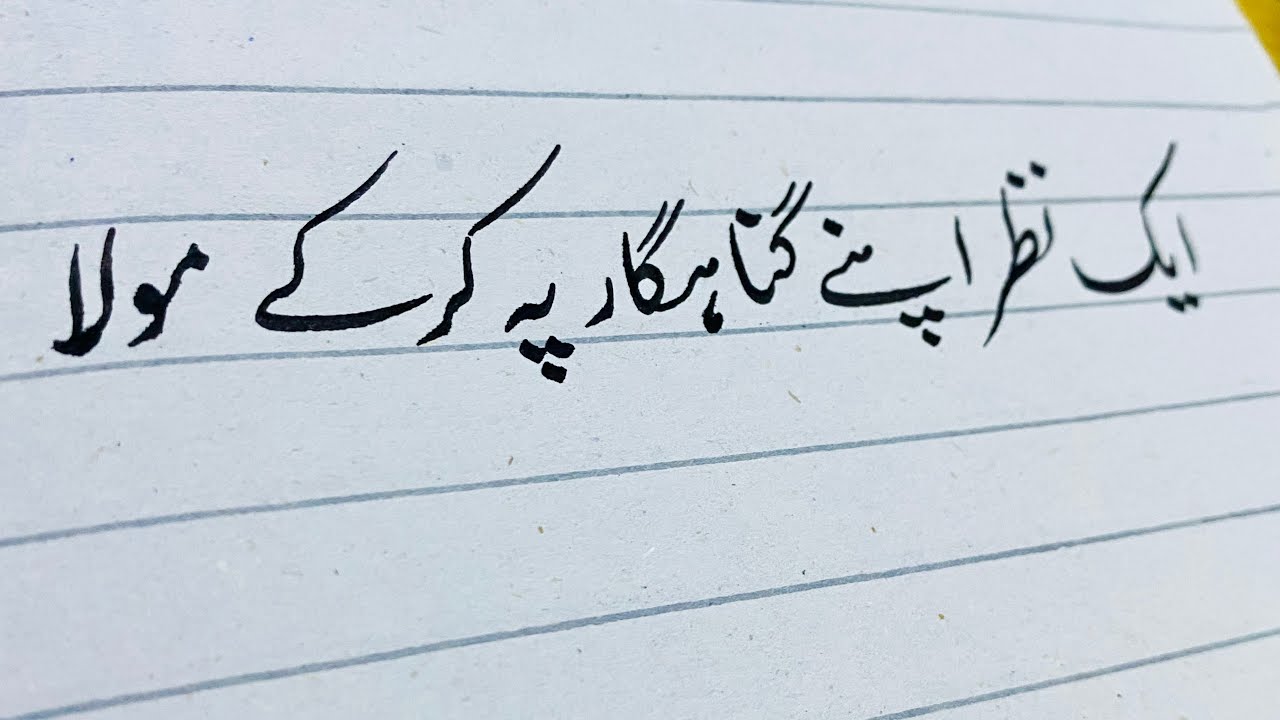 ایک نظر اپنے گناہگار پہ کر کے مولا